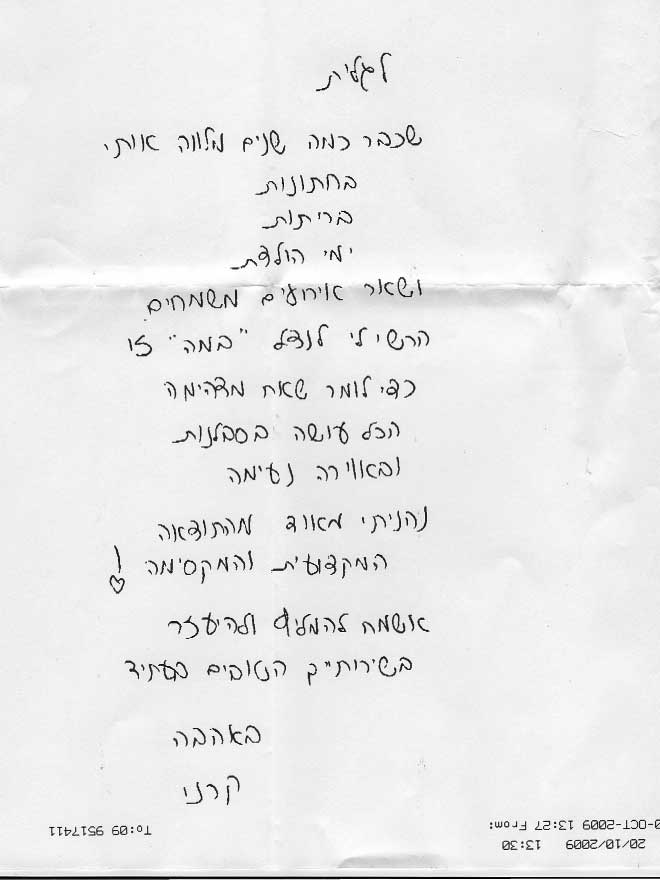 לגלית
שכבר כמה שנים מלווה אותי
בחתונות
בריתות
ימי הולדת
ושאר אירועים משמחים
הרשי לי לנצל "במה" זו
כדי לומר שאת מדהימה
הכל עושה בסבלנות
ובאווירה נעימה
נהניתי מאוד מהתוצאה
המקצועית והמקסימה!
אשמח להמליץ ולהיעזר
בשירותייך הטובים בעתיד
באהבה
קרני
0-OCT-2009 13:27 From:
To:09 9517411
20/10/2009 13:30